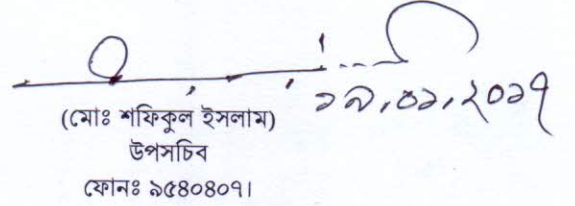 ১৯.০১.২০১৭
(মোঃ শফিকুল ইসলাম)
উপসচিব
ফোনঃ ৯৫৪০৪০৭।